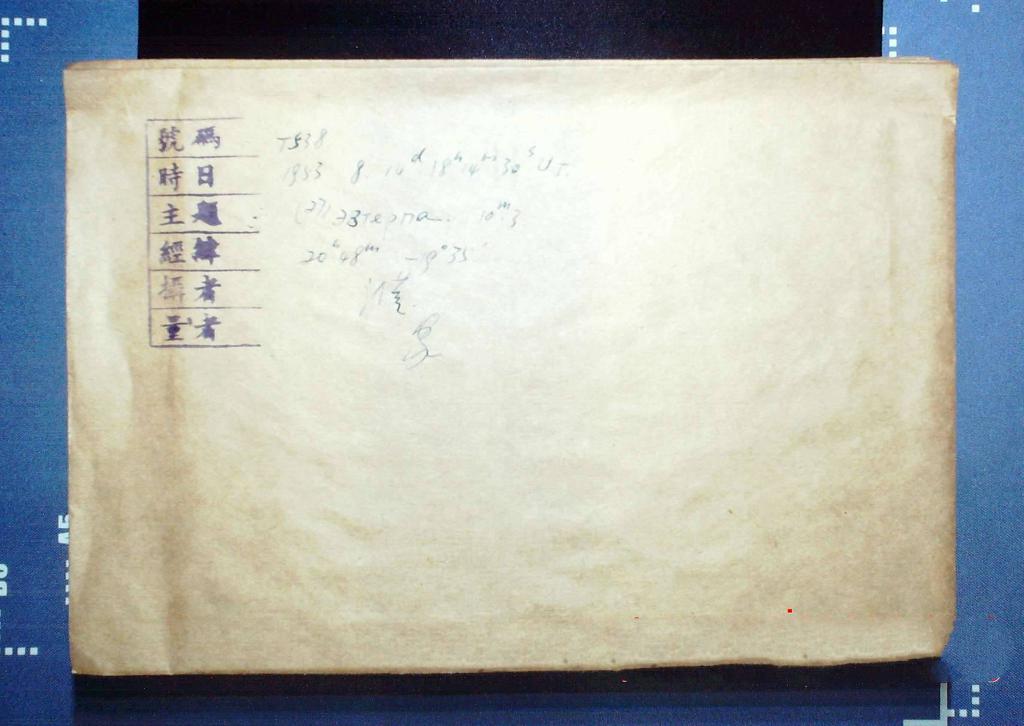 號碼 T538
時日 1953 8. 14ᵈ 18ʰ 14ᵐ 30ˢ U.T.
主題 (27) Эвтерпа. 10ᵐ.3
經緯 20ʰ48ᵐ -19°35'
攝者
量者